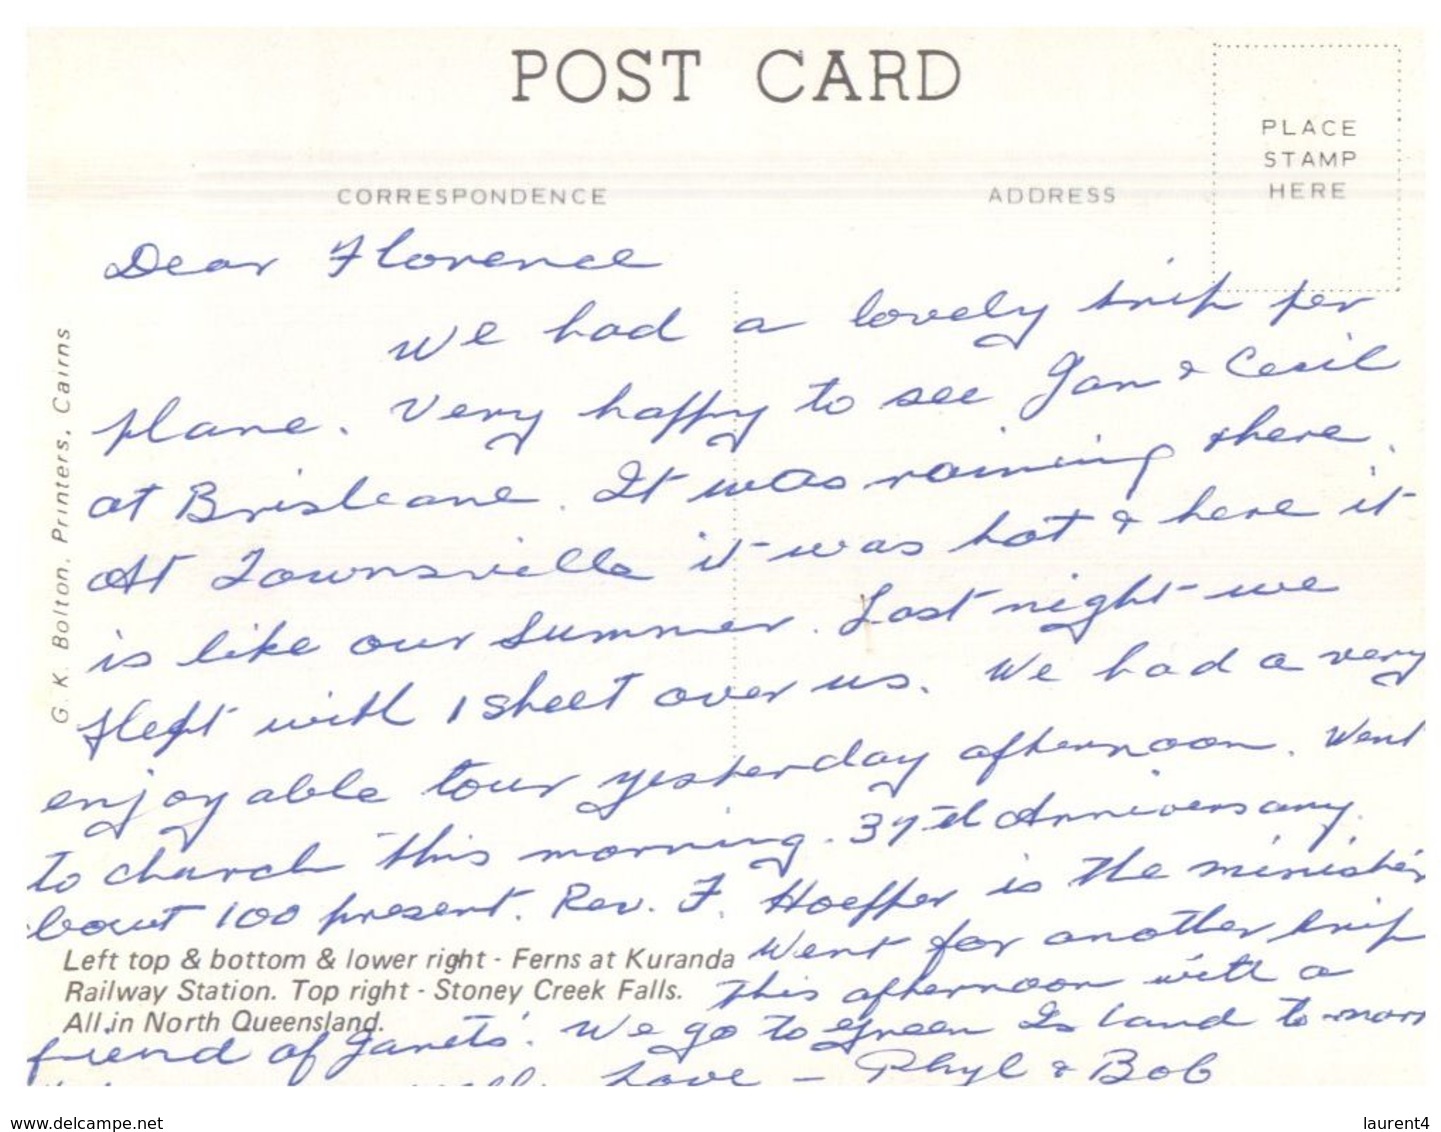 POST CARD
PLACE
STAMP
HERE
CORRESPONDENCE
ADDRESS
Dear Florence
We had a lovely trip per
plane. Very happy to see Jan & Cecil
at Brisbane. It was raining there.
At Townsville it was hot & here it
is like our Summer. Last night we
slept with 1 sheet over us. We had a very
enjoyable tour yesterday afternoon. Went
to church this morning. 37th Anniversary.
bout 100 present. Rev. F. Hoeffer is the minister
Went for another trip
this afternoon with a
friend of Janets'. We go to Green Island to-morr
Love - Phyl & Bob
G. K. Bolton, Printers, Cairns
Left top & bottom & lower right - Ferns at Kuranda
Railway Station. Top right - Stoney Creek Falls.
All in North Queensland.
www.delcampe.net
laurent4